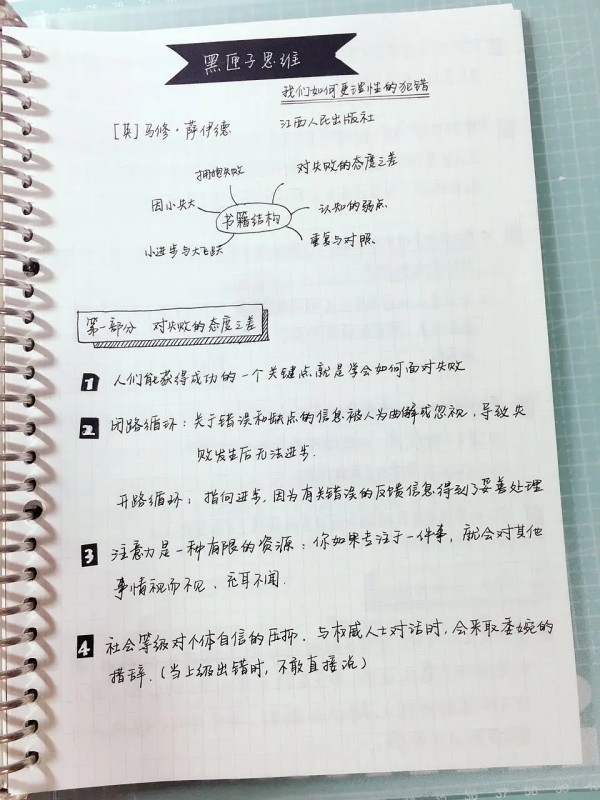 黑匣子思维
我们如何更理性的犯错
[英]马修·萨伊德
江西人民出版社
拥抱失败
对失败的态度之差
因小失大
书籍结构
认知的弱点
小进步与大飞跃
重复与对照
第一部分 对失败的态度之差
1 人们能获得成功的一个关键点就是学会如何面对失败
2 闭路循环：关于错误和缺点的信息被人为曲解或忽视，导致失
败发生后无法进步.
开路循环：指向进步，因为有关错误的反馈信息得到了妥善处理
3 注意力是一种有限的资源：你如果专注于一件事，就会对其他
事情视而不见、充耳不闻.
4 社会等级对个体自信的压抑. 与权威人士对话时，会采取委婉的
措辞.（当上级出错时，不敢直接说）